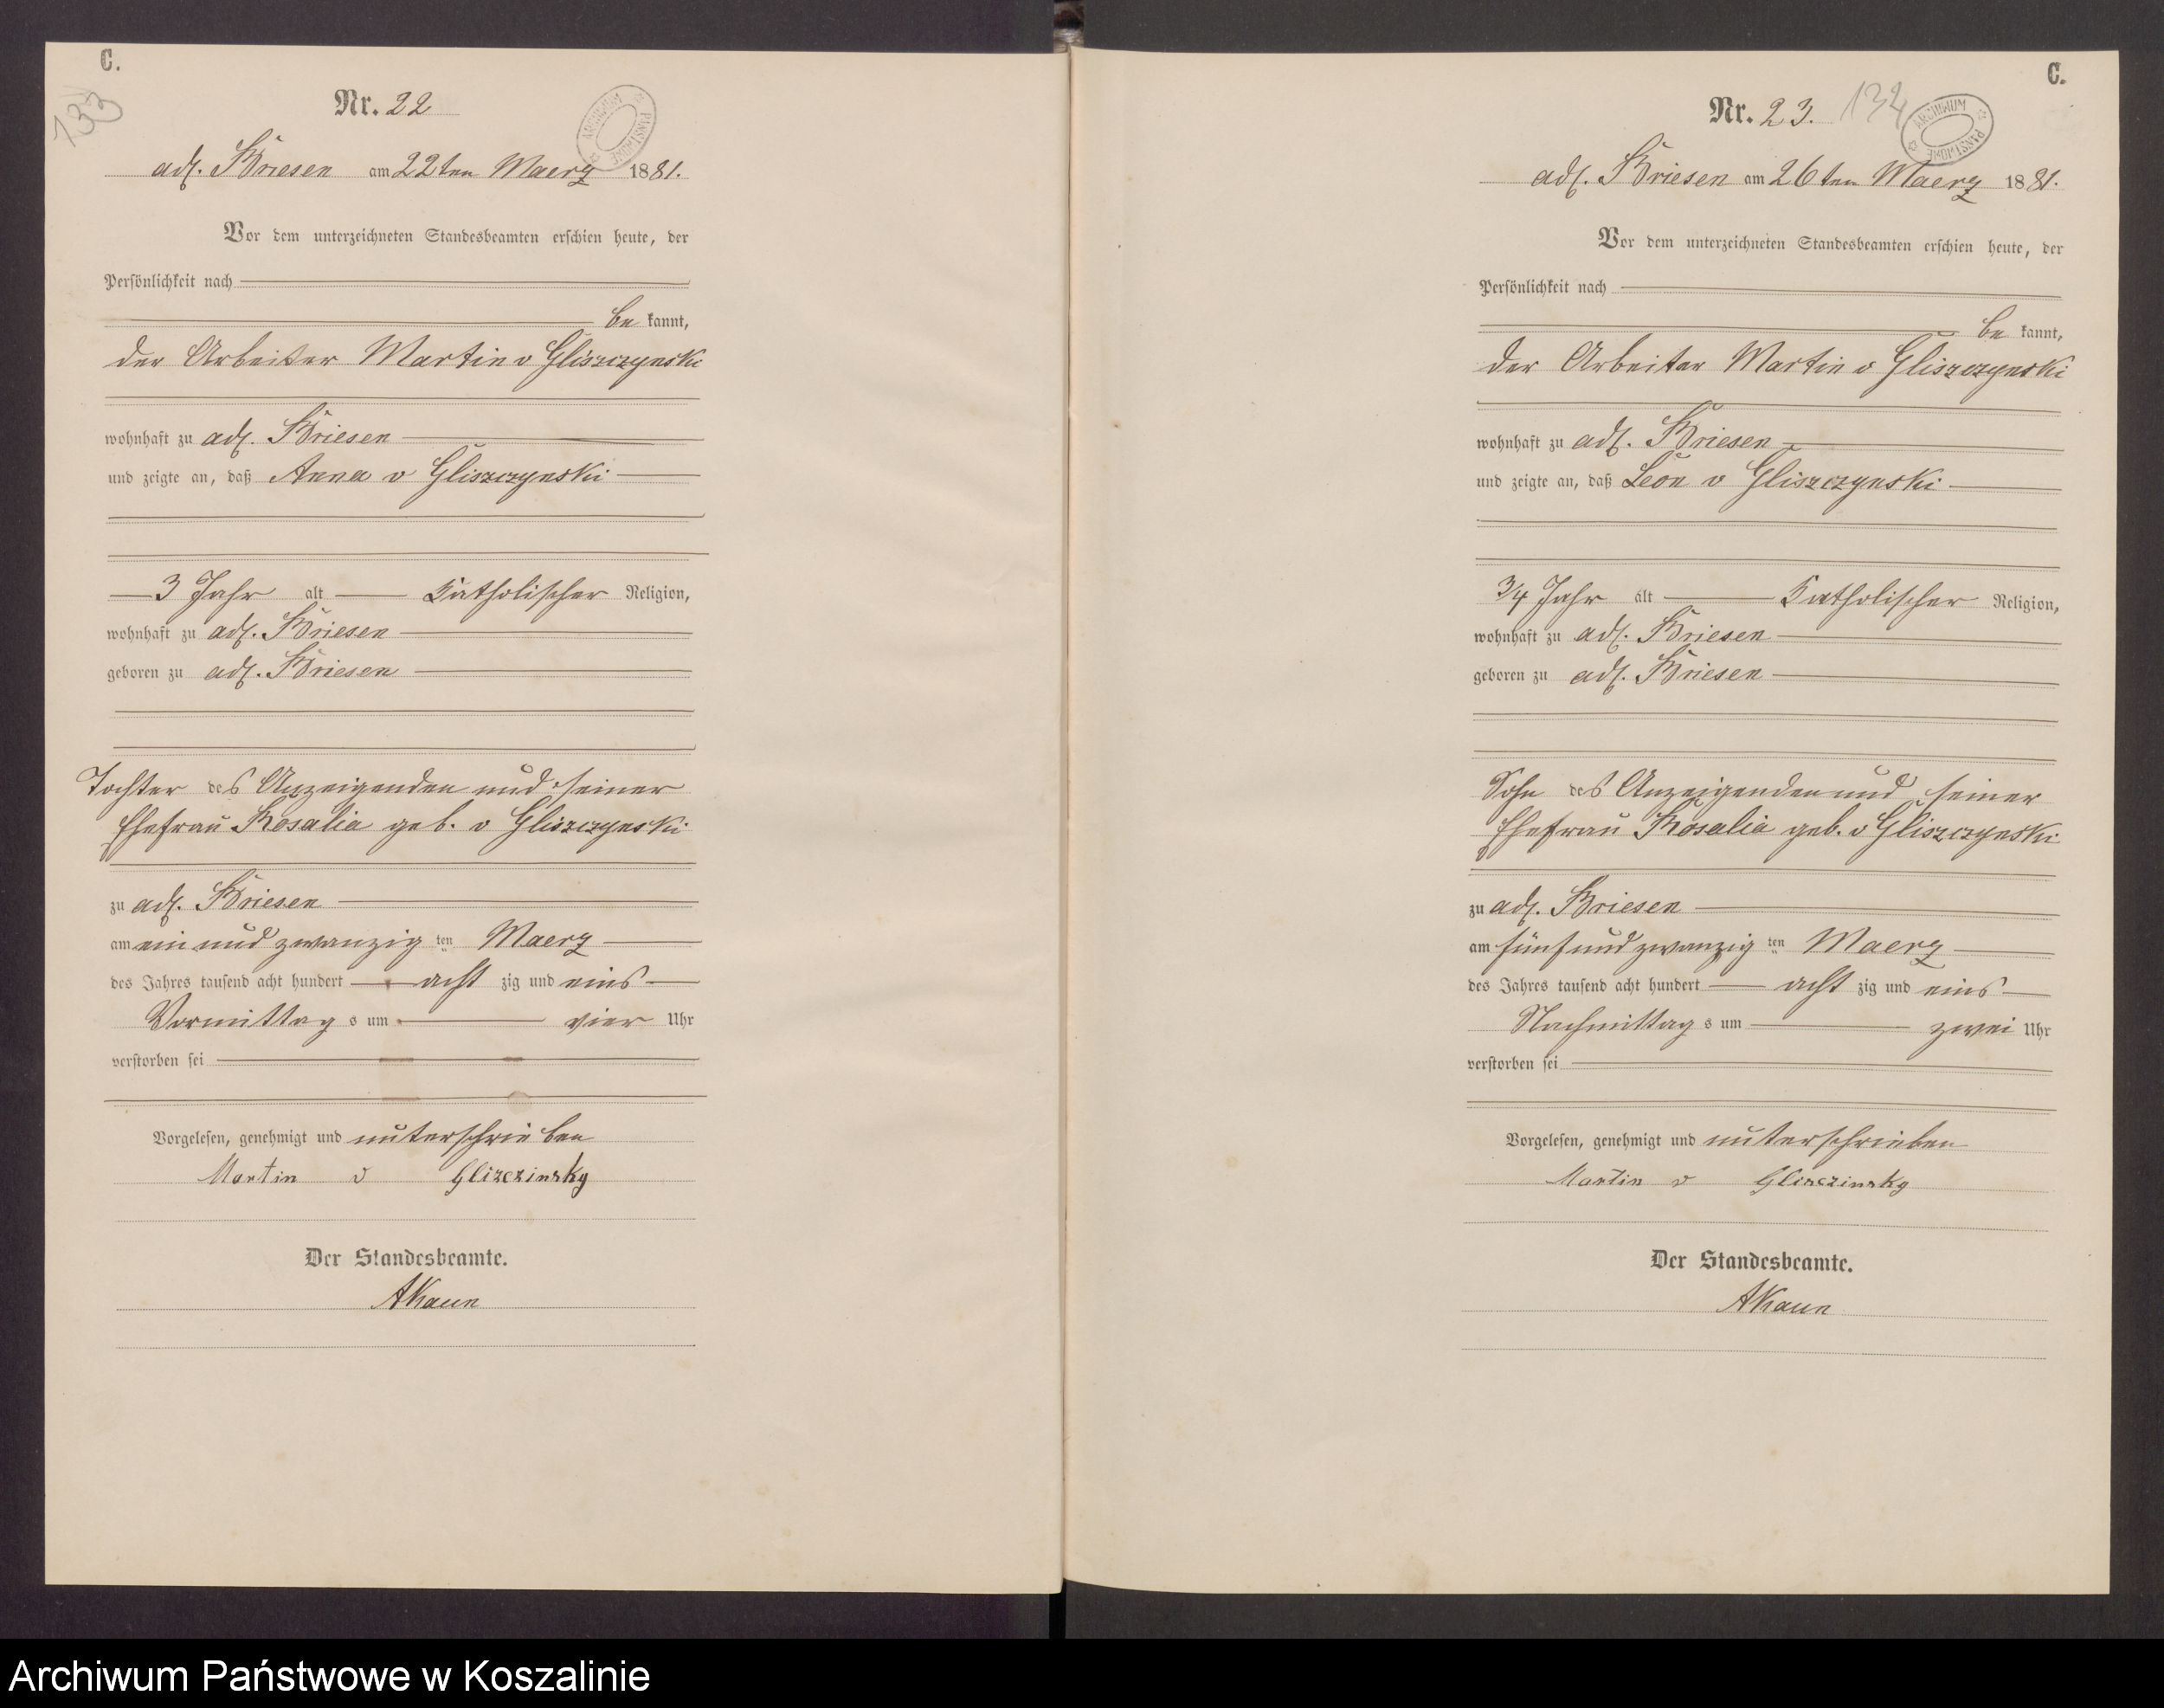 C.
133
Nr. 22
ARCHIWUM PAŃSTWOWE
adl. Briesen am 22ten Maerz 1881.
Vor dem unterzeichneten Standesbeamten erschien heute, der
Persönlichkeit nach
be kannt,
der Arbeiter Martin v Gliszczynski
wohnhaft zu adl. Briesen
und zeigte an, daß Anna v Gliszczynski
3 Jahr alt Katholischer Religion,
wohnhaft zu adl. Briesen
geboren zu adl. Briesen
Tochter des Anzeigenden und seiner
Ehefrau Rosalia geb. v Gliszczynski
zu adl. Briesen
am ein und zwanzig ten Maerz
des Jahres tausend acht hundert acht zig und eins
Vormittag s um vier Uhr
verstorben sei
Vorgelesen, genehmigt und unterschrieben
Martin v Gliszczinsky
Der Standesbeamte.
AKaun
C.
Nr. 23. 134
ARCHIWUM PAŃSTWOWE
adl. Briesen am 26ten Maerz 1881.
Vor dem unterzeichneten Standesbeamten erschien heute, der
Persönlichkeit nach
be kannt,
der Arbeiter Martin v Gliszczynski
wohnhaft zu adl. Briesen
und zeigte an, daß Leon v Gliszczynski
3/4 Jahr alt Katholischer Religion,
wohnhaft zu adl. Briesen
geboren zu adl. Briesen
Sohn des Anzeigenden und seiner
Ehefrau Rosalia geb. v Gliszczynski
zu adl. Briesen
am fünf und zwanzig ten Maerz
des Jahres tausend acht hundert acht zig und eins
Nachmittag s um zwei Uhr
verstorben sei
Vorgelesen, genehmigt und unterschrieben
Martin v Glisczinsky
Der Standesbeamte.
AKaun
Archiwum Państwowe w Koszalinie